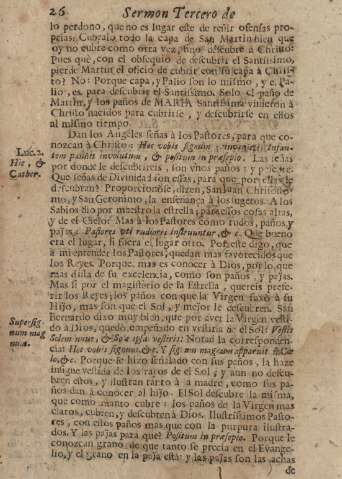 26 Sermon Tercero de
lo perdono, que no es lugar este de reñir ofensas pro-
prias: Cubralo todo la capa de San Martin bien que
oy no cubre como otra vez, sino descubre à Christo:
Pues què, con el obsequio de descubrir el Santissimo,
pierde Martin el oficio de cubrir con su capa à Chris-
to? No: Porque capa, y Palio son lo mismo, y el Pa-
lio, es para descubrir el Santissimo. Solo el paño de
Martin, y los paños de MARIA Santissima vinieron à
Christo nacidos para cubrirse, y descubrirse en ellos
al mismo tiempo.
Dan los Angeles señas à los Pastores, para que co-
nozcan à Christo: Hoc vobis signum: invenietis Infan-
Luc. 2.
tem pannis involutum, & positum in præsepio. Las señas
Hic, &
por donde le descubrireis, son vnos paños: y pajas.
Cather.
Que señas de Divinidad son estas, para que por ellas le
descubran? Proporcionòse, dizen, San Juan Chrisosto-
mo, y San Geronimo, la enseñança à los sugetos. A los
Sabios dio por maestro la estrella, para ellos cosas altas,
y de el Cielo: Mas à los Pastores como rudos, paños, y
pajas: Pastores vti rudiores instruuntur, & c. Que bueno
era el lugar, si fuera el lugar otro. Por esse digo, que
à mi entender los Pastores, quedan mas favorecidos que
los Reyes. Porque, mas es conocer à Dios, por lo que
mas dista de su excelencia, como son paños, y pajas.
Mas si por el magisterio de la Estrella, quereis prefe-
rir los Reyes; los paños con que la Virgen faxò à su
Hijo, mas son que el Sol, y mejor le descubren. San
Bernardo dixo muy bien, que por aver la Virgen vesti-
Super sig-
do à Dios, quedò empeñado en vestirla de el Sol: Vestis
num mag-
Solem nube, & Sole ipsa vestiris: Notad la correspondencia:
num.
Hoc vobis signum, &c. Y signum magnum apparuit in Cæ-
lo, &c. Porque se hizo señalado con sus paños, la haze
insigne vestida de los rayos de el Sol; y aun no descu-
bren estos, y ilustran tanto à la madre, como sus pa-
ños dan à conocer al hijo. El Sol descubre la misma,
que como manto cubre: los paños de la Virgen mas
claros, cubren, y descubren à Dios. Ilustrissimos Pasto-
res, con estos paños mas que con la purpura ilustra-
dos. Y las pajas para què? Positum in præsepio. Porque le
conozcan grano de que tanto se precia en el Evange-
lio, y el grano en la paja està: y las pajas son las achas
de